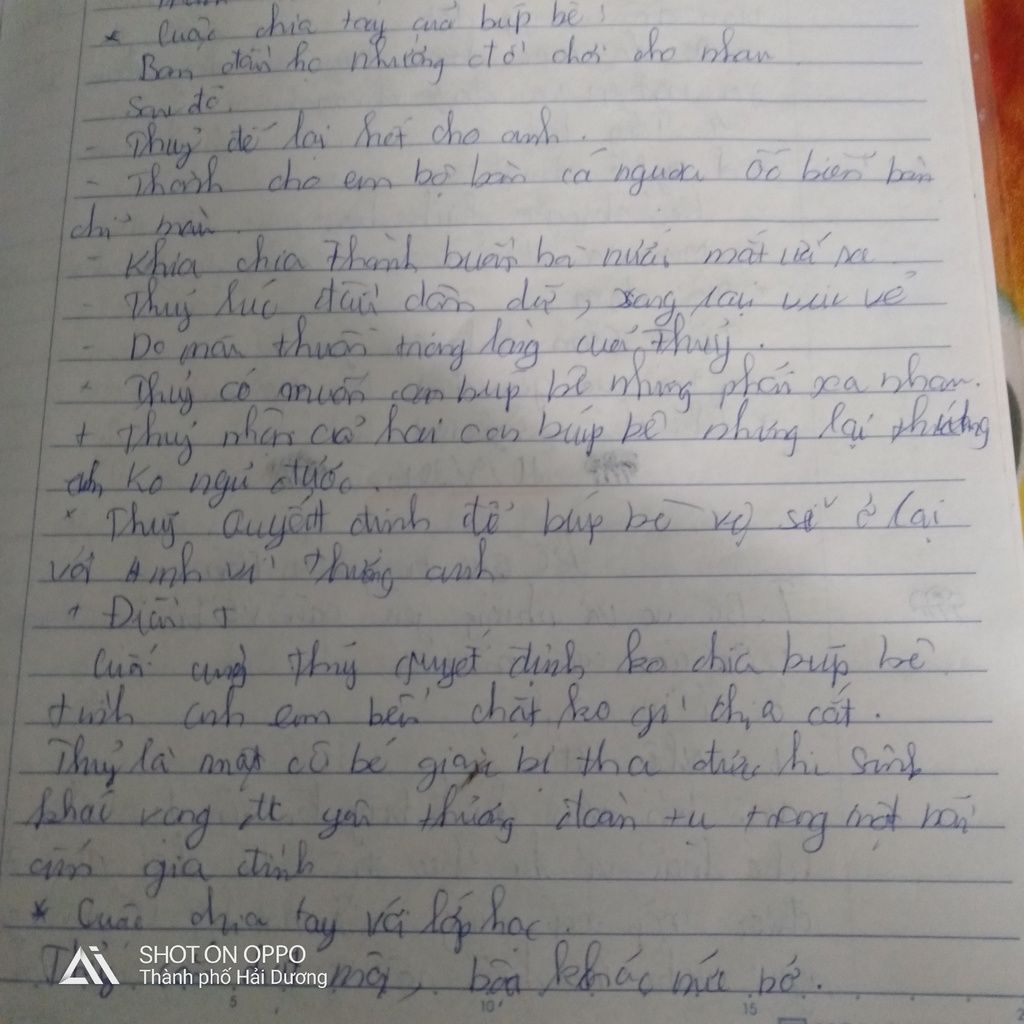 * Cuộc chia tay của búp bê:
Ban đầu họ nhường đồ chơi cho nhau
Sau đó.
- Thuỷ để lại hết cho anh.
- Thành cho em bộ bàn cá ngựa ốc biển bàn
chỉ màu
- Khia chia Thành buồn bã nước mắt ứa ra
- Thuỷ lúc đầu dân dữ, xong lại vui vẻ
- Do mâu thuẫn trong lòng của Thuỷ.
Thuỷ có muốn con búp bê nhưng phải xa nhau.
+ Thuỷ nhận cả hai con búp bê nhưng lại thương
anh ko ngủ được.
* Thuỷ quyết định để búp bê vệ sĩ ở lại
với anh vì thương anh
+ Điền +
Cuối cùng Thuỷ quyết định ko chia búp bê
tình anh em bền chặt ko gì chia cắt.
Thuỷ là một cô bé giàu bị tha đức hi sinh
khát vọng tc yêu thương đoàn tụ trong một mái
ấm gia đình
* Cuộc chia tay với lớp học.
môi, bàn khác nức nở.
SHOT ON OPPO
Thành phố Hải Dương
5 10 15